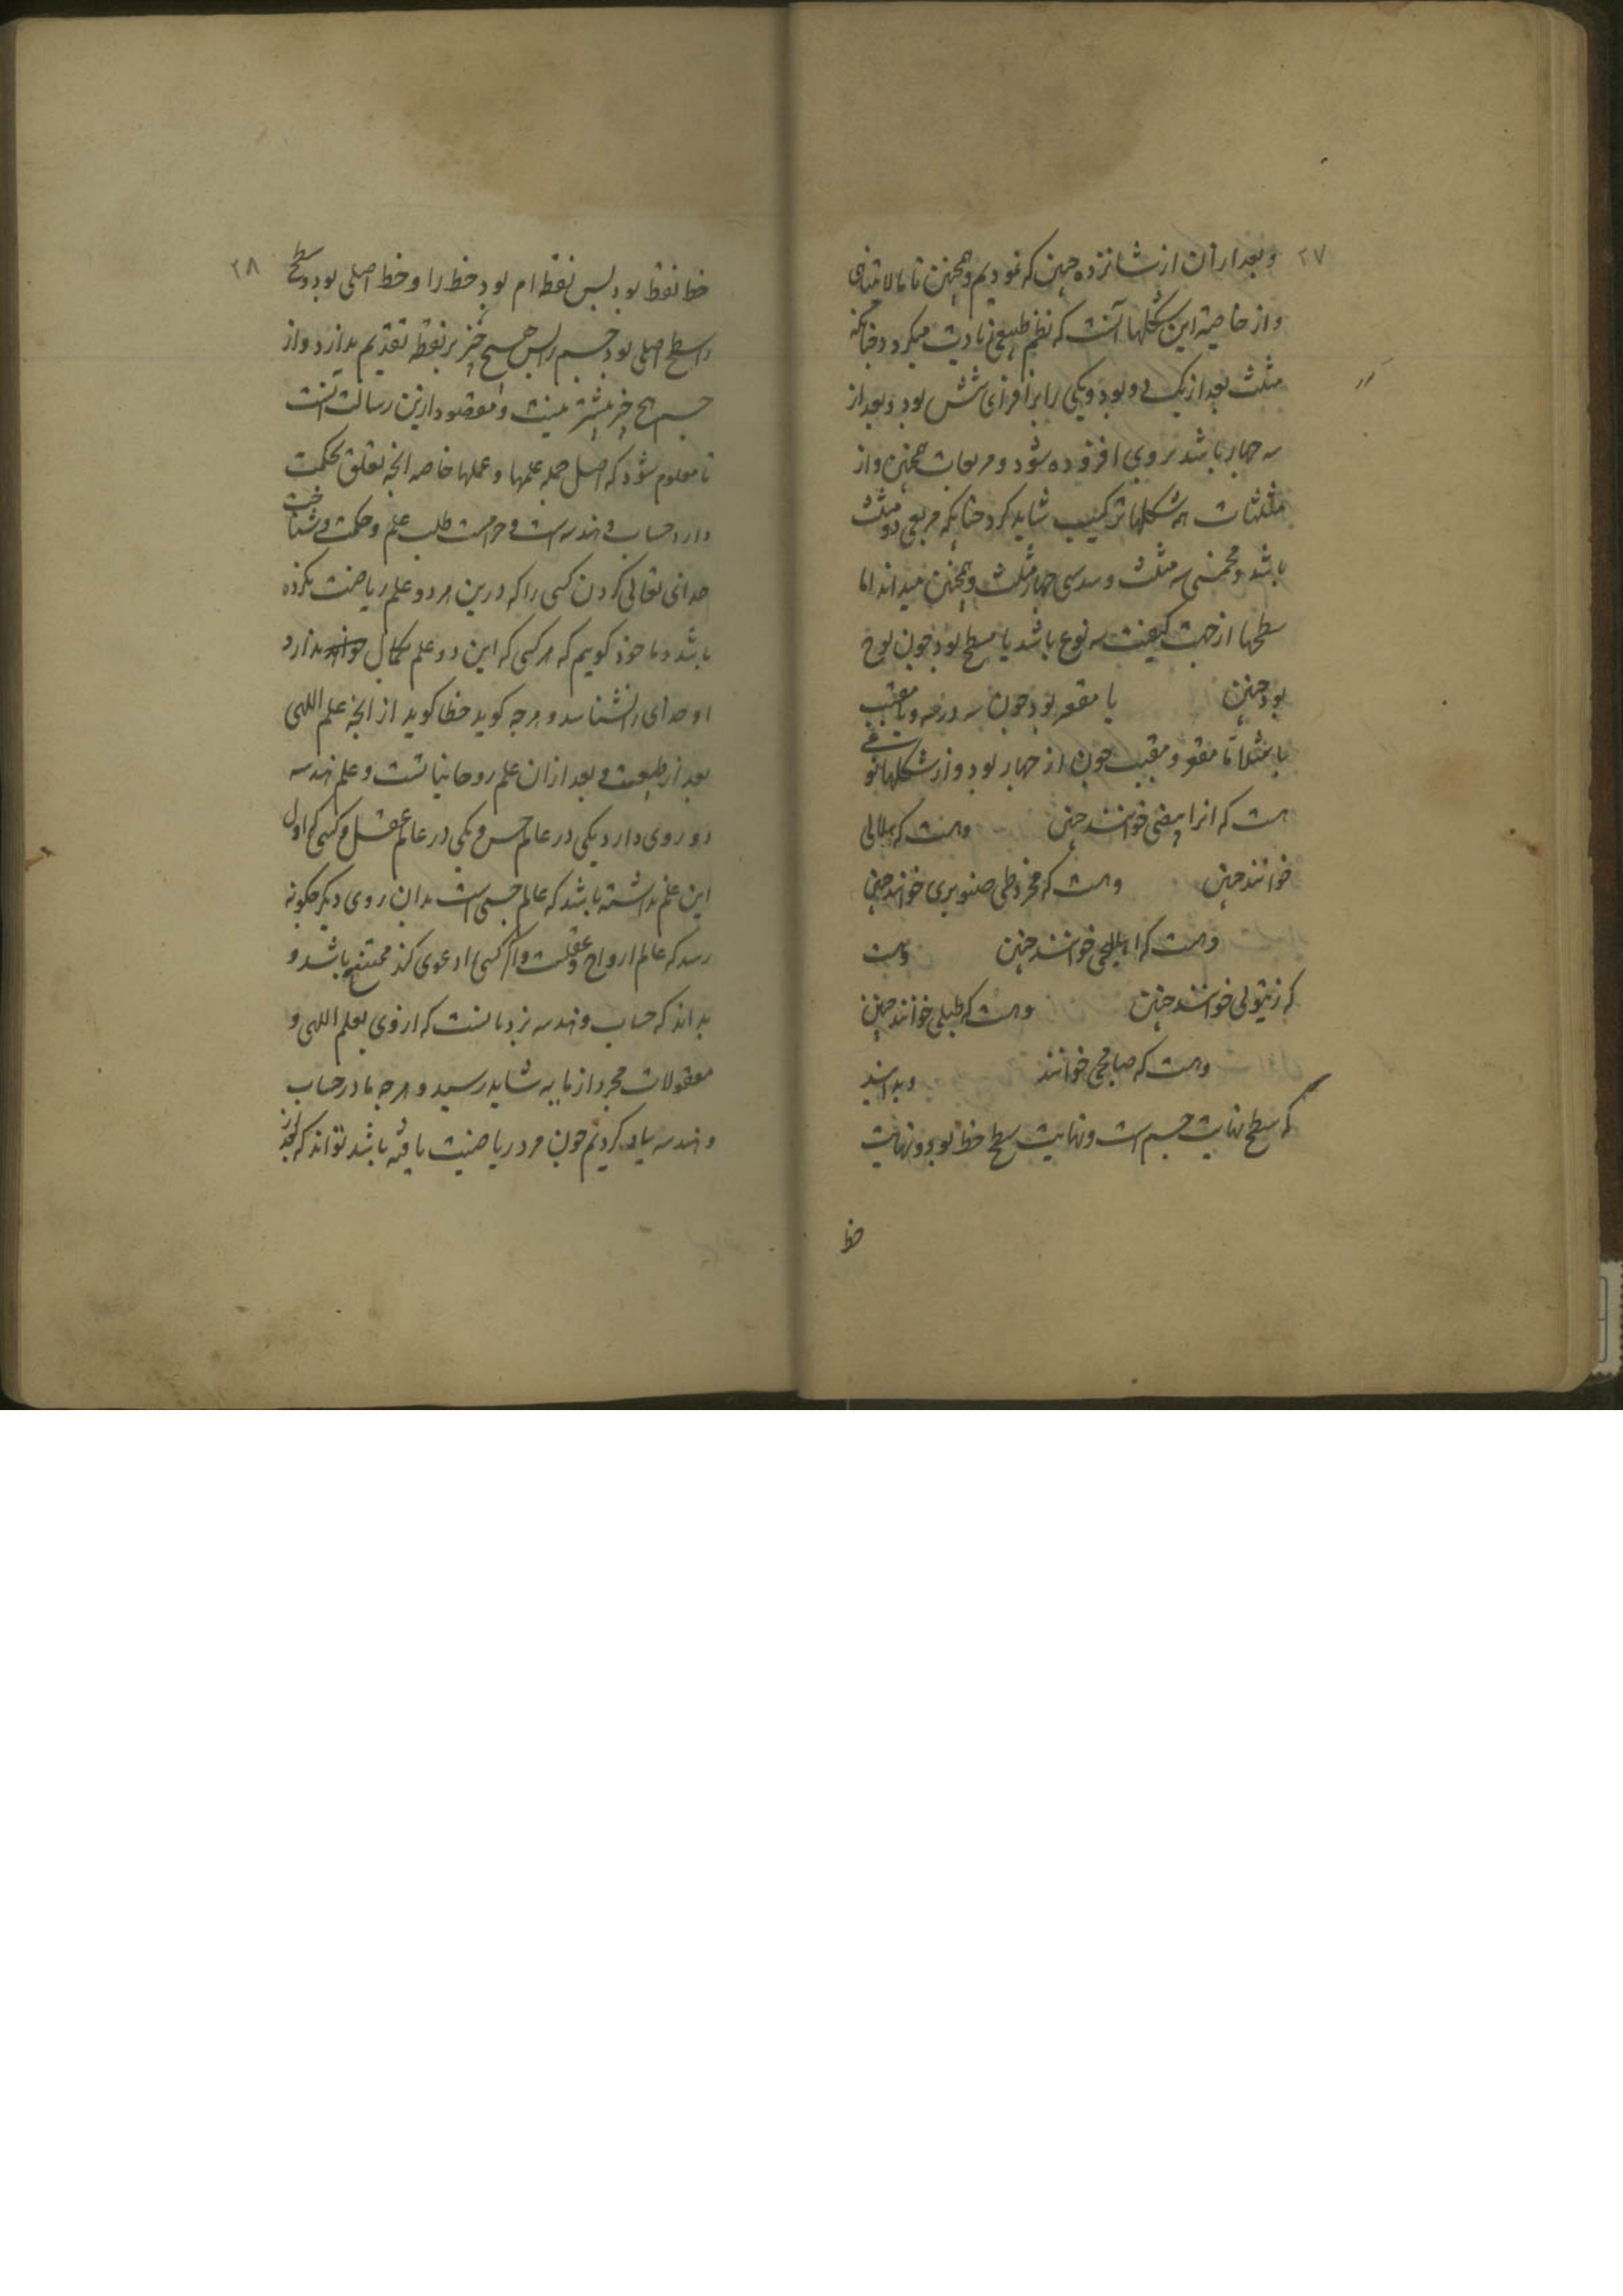 ۲۷
و بعد ازان از شانزده چنین که نمودیم و همچنین تا مالا یتناهی
و از خاصیة این شکلها آنست که نظم طبیعی زیادت میکردد چنانکه
مثلث بعد از یک بود و یکی را برافزای شش بود و بعد از
سه چهار باشد بروی افزوده شود و مربعات همچنین و از
مثلثات همه شکلها ترکیب شاید کرد چنانکه مربعی دو مثلث
باشد و مخمسی سه مثلث و مسدسی چهار مثلث و همچنین میدانند اما
سطحها از جهت کیفیت سه نوع باشد یا مسطح بود چون لوح
بود چنین یا مقعر بود چون و یا مقبب
یا مثلا مقعر و مقبب چون بود و از شکلها نوعی
هست که انرا بیضی خوانند چنین وهست که هلالی
خوانند چنین وهست که مخروطی صنوبری خوانند چنین
وهست که اهلیلجی خوانند چنین وهست
که زیتونی خوانند چنین وهست که طبلی خوانند چنین
وهست که خوانند و بدانید
که سطح نهایت جسم است و نهایت سطح خط بود و نهایت
خط
۲۸
خط نقطه بود پس نقطه ام بود خط را و خط اصلی بود سطح
را و سطح اصلی بود جسم را پس هیچ چیز بر نقطه تقدیم ندارد و از
جسم هیچ چیز بیشتر نیست و مقصود ازین رسالت انست
تا معلوم شود که اصل جمله علمها و عملها خاصه انچه تعلق بحکمت
دارد حساب و هندسه است و حرامست طلب علم و حکمت و شناخت
خدای تعالی کردن کسی را که درین هر دو علم ریاضت نکرده
باشد و ما خود کوییم که هر کسی که این دو علم بکمال ندارد
او خدای را نشناسد و هرچه کوید خطا کوید از انچه علم اللهی
بعد از طبیعت و بعد ازان علم روحانیاتست و علم هندسه
دو روی دارد یکی در عالم حس و یکی در عالم عقل و کسی که اول
این علم نداشته باشد که عالم حسی است بدان روی دیکر چکونه
رسد که عالم ارواح و عقلست و اکر کسی دعوی کند ممتنع باشد و
بداند که حساب و هندسه نردبانست که از وی بعلم اللهی و
معقولات مجرد از مایه شاید رسید و هرچه ما در حساب
و هندسه یاد کردیم چون مرد ریاضت یافته باشد تواند که